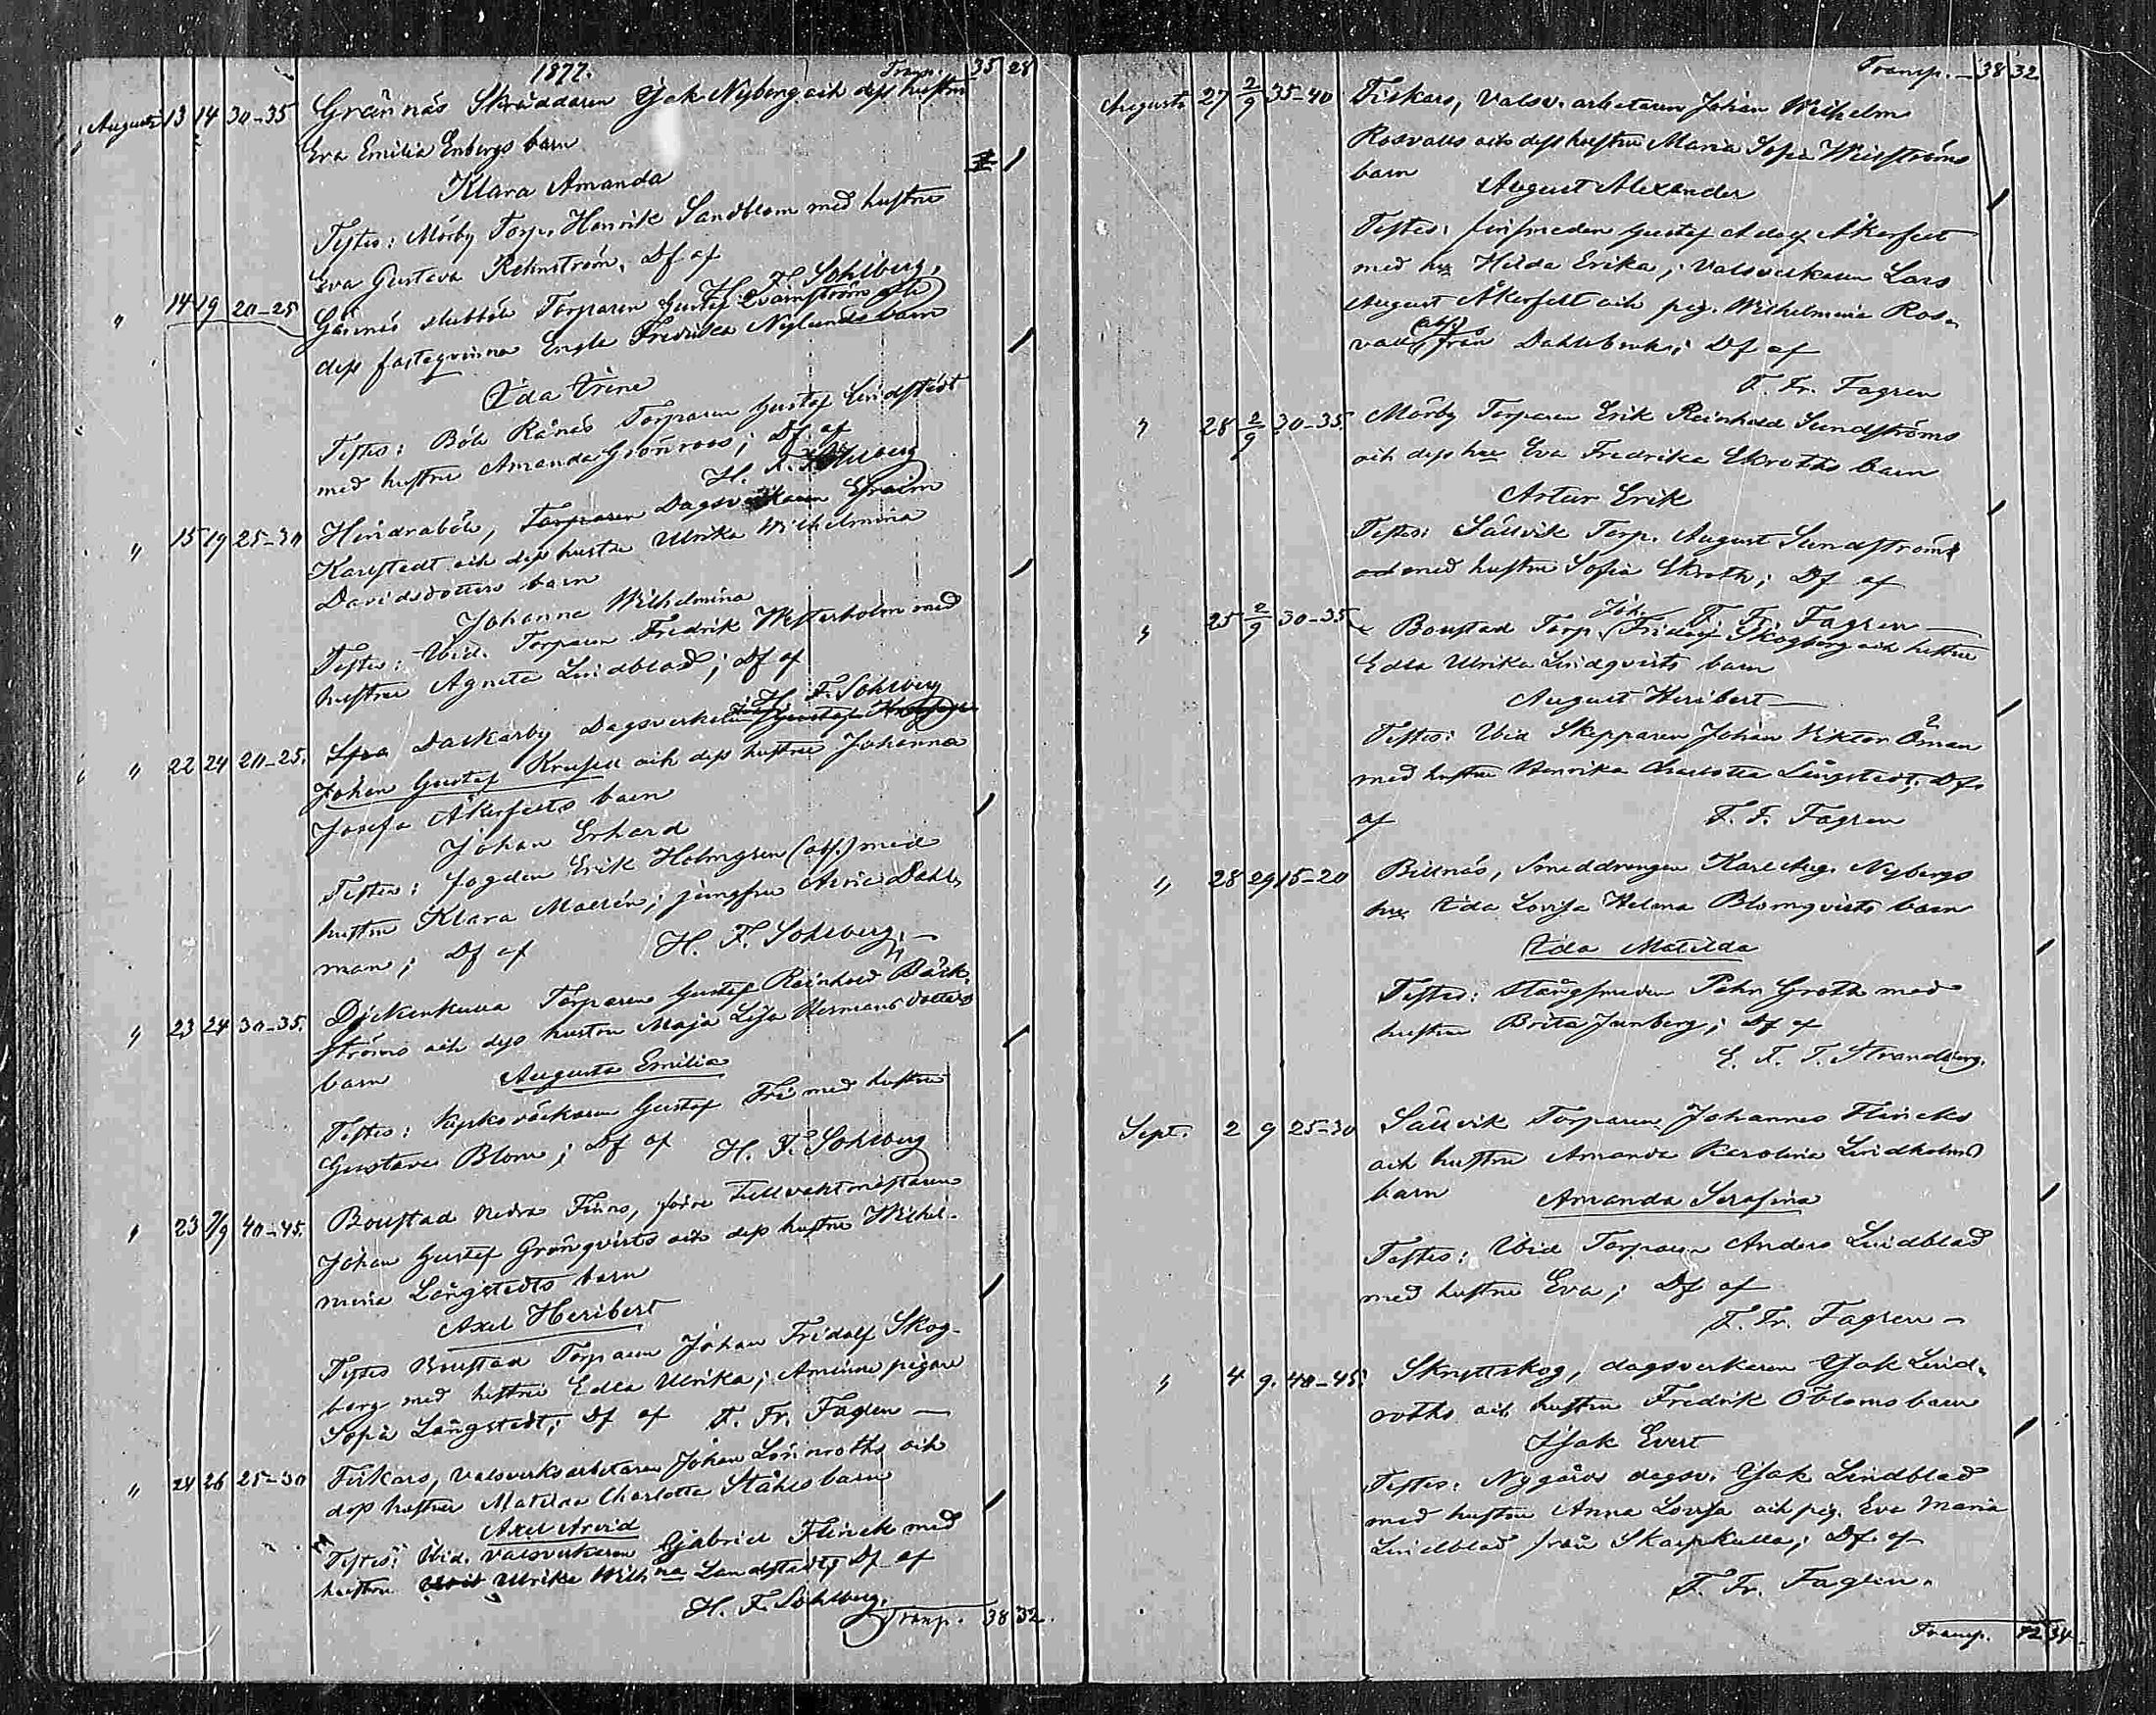 1877.
Transp. 35 28
Augusti 13 14 30-35 Grännäs Skräddaren Isak Nyberg och dess hustru
Eva Emilia Enbergs barn
1
Klara Amanda
Testes: Mörby Torp. Henrik Sandblom med hustru
Eva Gustava Rehnström, Df af
H. F. Sohlberg.
" 14 19 20-25 Torparen Gustaf Qvarnström och
dess fästeqvinna Engla Fredrika Nylunds barn
Ida Irene
Testes: Böle Rånäs Torparen Gustaf Lindstedt
med hustru Amanda Grönroos; Df af
H. F. Sohlberg
" 15 19 25-30 Hindraböle, Torparen Dagsverkaren Efraim
Karlstedt och dess hustru Ulrika Wilhelmina
Davidsdotters barn
Johanna Wilhelmina
Testes: Ibid. Torparen Fredrik Westerholm med
hustru Agneta Lindblad; Df af
H. F. Sohlberg
" 22 24 20-25. Daskarby Dagsverkaren
Johan Gustaf Krusell och dess hustru Johanna
Josefa Åkerfelts barn
Johan Erhard
Testes: fogden Erik Holmgren (abs.) med
hustru Klara Malén; jungfru Dahl-
man; Df af H. F. Sohlberg. -
" 23 24 30-35. Dickenkulla Torparen Gustaf Reinhold Bäck-
ströms och dess hustru Maja Lisa Hermansdotters
barn Augusta Emilia
Testes: Kyrkoväktaren Gustaf Fri med hustru
Gustava Blom; Df af H. F. Sohlberg
" 23 2/9 40-45. Boustad nedra Finns, förre Tullvaktmästaren
Johan Gustaf Grönqvists och dess hustru Wilhel-
mina Långstedts barn
Axel Heribert
Testes Boustad Torparen Johan Fridolf Skog-
berg med hustru Edla Ulrika; Aminne pigan
Sofia Långstedt; Df af F. Fr. Fagren -
" 24 26 25-30 Fiskars, Valsverksarbetaren Johan Lönnroths och
dess hustru Matilda Charlotta Ståhls barn
Axel Arvid
Testes: Ibid. Valsverkaren Gabriel Flinck med
hustru Ulrika Wilhna Landstedt; Df af
H. F. Sohlberg.
Transp. 38 32.
Transp. - 38 32
Augusti 27 2/9 35-40 Fiskars, Valsv. arbetaren Johan Wilhelm
Rosvalls och dess hustru Maria Sofia Weiströms
barn August Alexander
Testes: finsmeden Gustaf Adolf Åkerfelt
med hu Hilda Erika; Valsverkaren Lars
August Åkerfelt och pig. Wilhelmina Ros-
vall (abs) från Dahlsbruk; Df af
F. Fr. Fagren
" 28 2/9 30-35. Mörby Torparen Erik Reinhold Sundströms
och dess hu Eva Fredrika Ekroths barn
Artur Erik
Testes: Sällvik Torp. August Sundström
med hustru Sofia Ekroth; Df af
F. Fr. Fagren -
" 25 2/9 30-35 Boustad Torp. Joh. Fridolf Skogberg och hustru
Edla Ulrika Lindqvists barn
August Heribert -
Testes: Ibid Skepparen Johan Viktor Öman
med hustru Henrika Charlotta Långstedt; Df.
af F. F. Fagren
" 28 29 15-20 Billnäs, Smeddrengen Karl Aug. Nybergs
hu Ida Lovisa Helena Blomqvists barn
Ida Matilda
Testes: Stångsmeden Pehr Groth med
hustru Brita Janberg; Df af
E. F. T. Strandberg.
Sept. 2 9 25-30 Sällvik Torparen Johannes Flincks
och hustru Amanda Karolina Lindholms
barn Amanda Serafina
Testes: Ibid Torparen Anders Lindblad
med hustru Eva; Df af
F. Fr. Fagren -
" 4 9. 40-45. Skryttskog, dagsverkaren Isak Lind-
roths och hustru Fredrik Öbloms barn
Isak Evert
Testes. Nygård dagsv. Isak Lindblad
med hustru Anna Lovisa och pig. Eva Maria
Lindblad från Skarpkulla; Df. af
F. Fr. Fagren.
Transp. 42 34.